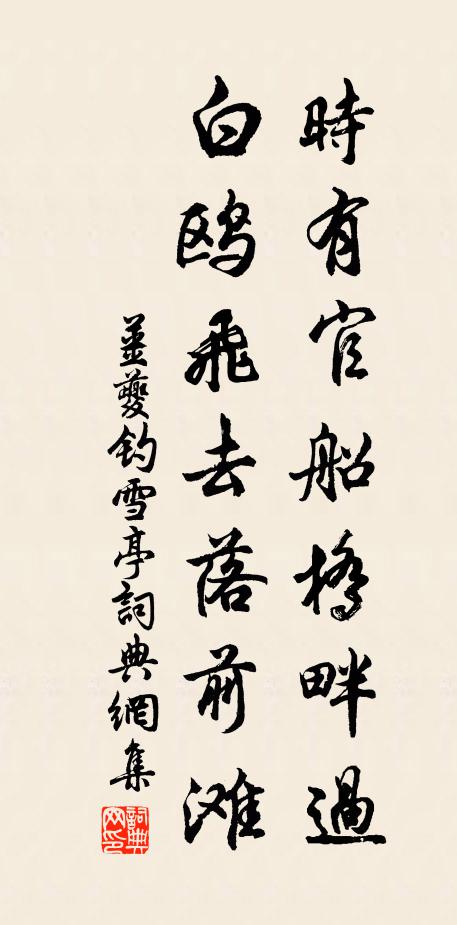 時有官船橋畔過
白鷗飛去落前灘
薑夔釣雪亭詞典網集
詞典网印